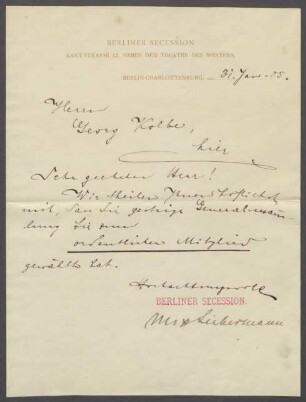 BERLINER SECESSION
KANTSTRASSE 12, NEBEN DEM THEATER DES WESTENS.
BERLIN-CHARLOTTENBURG, 31. Jan. 05.
Herrn
Georg Kolbe,
hier
Sehr geehrter Herr!
Wir theilen Ihnen höflichst
mit, dass die gestrige Generalversamm-
lung Sie zum
ordentlichen Mitglied
gewählt hat.
Hochachtungsvoll
BERLINER SECESSION.
Max Liebermann